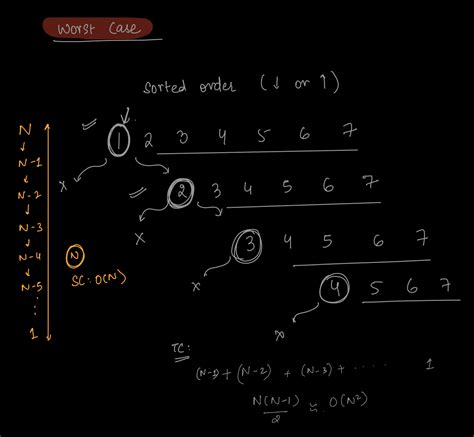 Worst Case
Sorted order (↓ or ↑)
N
↓
N-1
↓
N-2
↓
N-3
↓
N-4
↓
N-5
⋮
1
N
SC: O(N)
1 2 3 4 5 6 7
x
2 3 4 5 6 7
x
3 4 5 6 7
x
4 5 6 7
x
TC:
(N-1) + (N-2) + (N-3) + ...... 1
N(N-1)/2 ≈ O(N²)